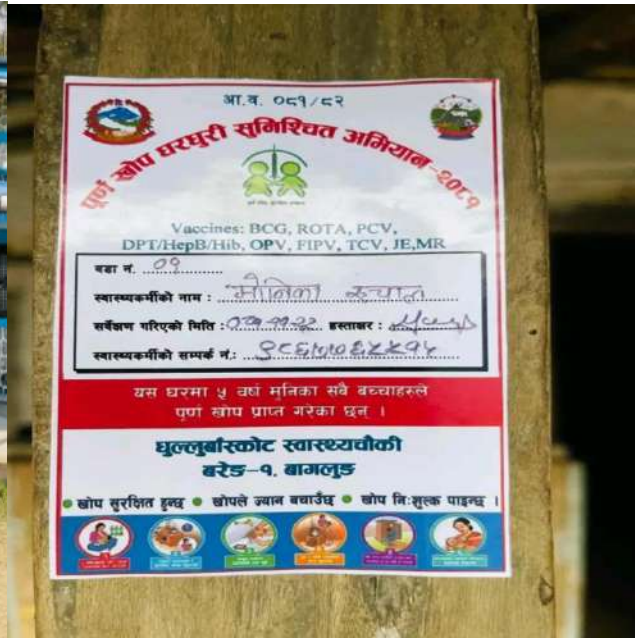 आ.व. ०८१/८२
पूर्ण खोप घरघुरी सुनिश्चित अभियान-२०८१
Vaccines: BCG, ROTA, PCV,
DPT/HepB/Hib, OPV, FIPV, TCV, JE,MR
वडा नं. ०१
स्वास्थ्यकर्मीको नाम : मोनिका
सर्वेक्षण गरिएको मिति : हस्ताक्षर :
स्वास्थ्यकर्मीको सम्पर्क नं.:
यस घरमा ५ वर्ष मुनिका सबै बच्चाहरुले
पूर्ण खोप प्राप्त गरेका छन् ।
घुल्लुबाँस्कोट स्वास्थ्यचौकी
बरेङ-१, बागलुङ
खोप सुरक्षित हुन्छ खोपले ज्यान बचाउँछ खोप निःशुल्क पाइन्छ ।